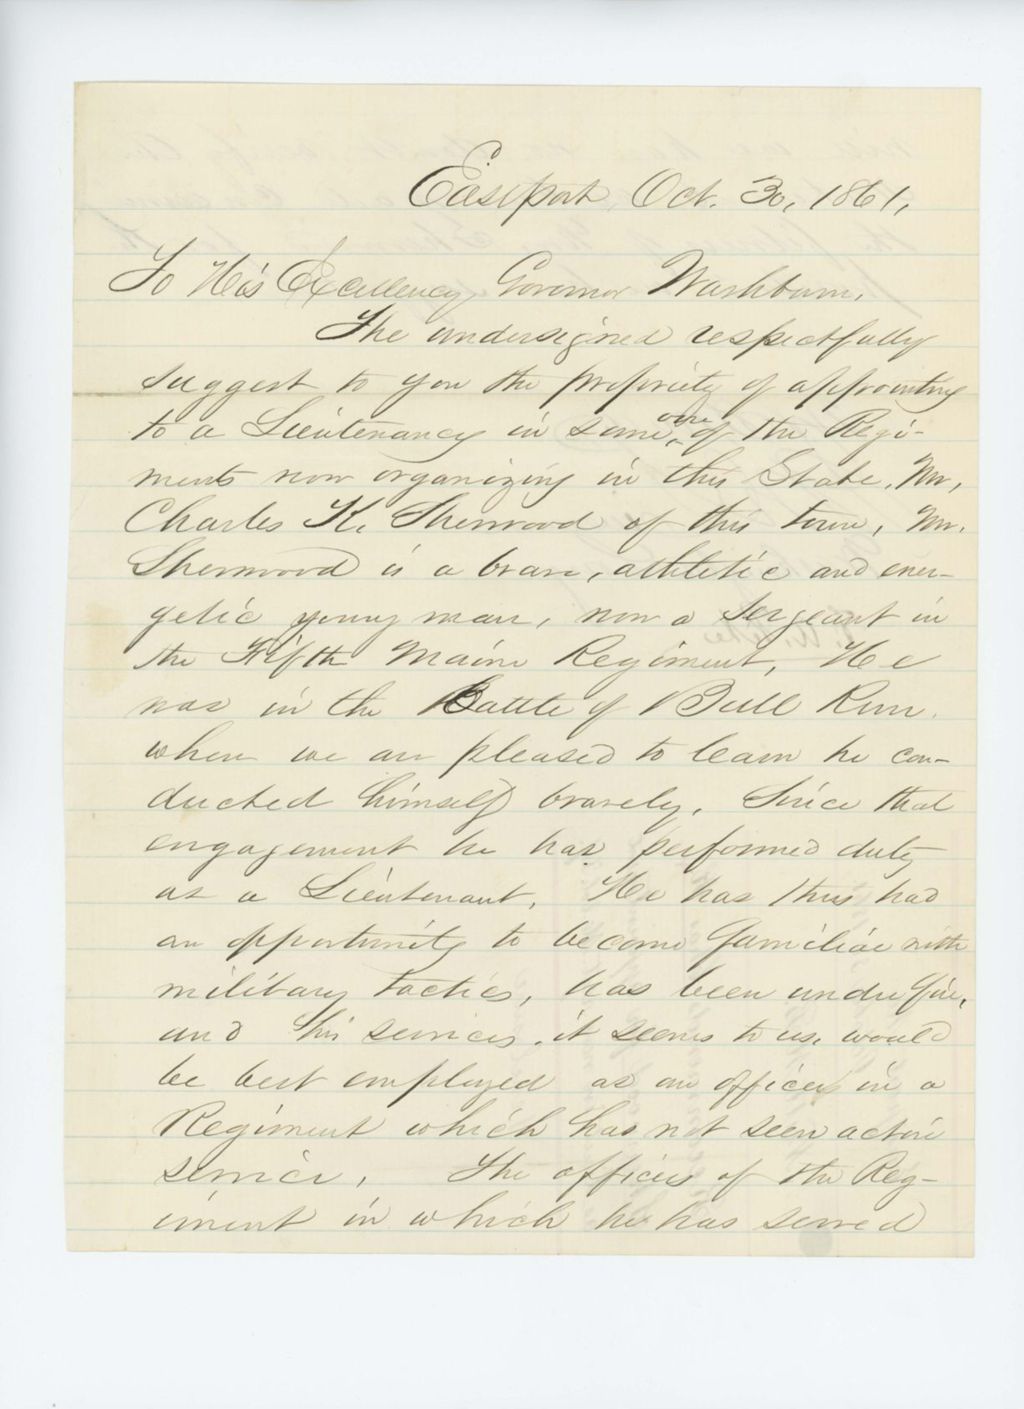 Eastport, Oct. 30, 1861,
To His Excellency Governor Washburn.
The undersigned respectfully
suggest to you the propriety of appointing
to a Lieutenancy in some one of the Regi-
ments now organizing in this State, Mr.
Charles K. Sherwood of this town, Mr.
Sherwood is a brave, athletic and ener-
getic young man, now a Sergeant in
the Fifth Maine Regiment, He
was in the Battle of Bull Run.
where we are pleased to learn he con-
ducted himself bravely. Since that
engagement he has performed duty
as a Lieutenant. He has thus had
an opportunity to become familiar with
military tactics, has been under fire,
and his services, it seems to us, would
be best employed as an officer in a
Regiment which has not seen active
service. The officers of the Reg-
iment in which he has served